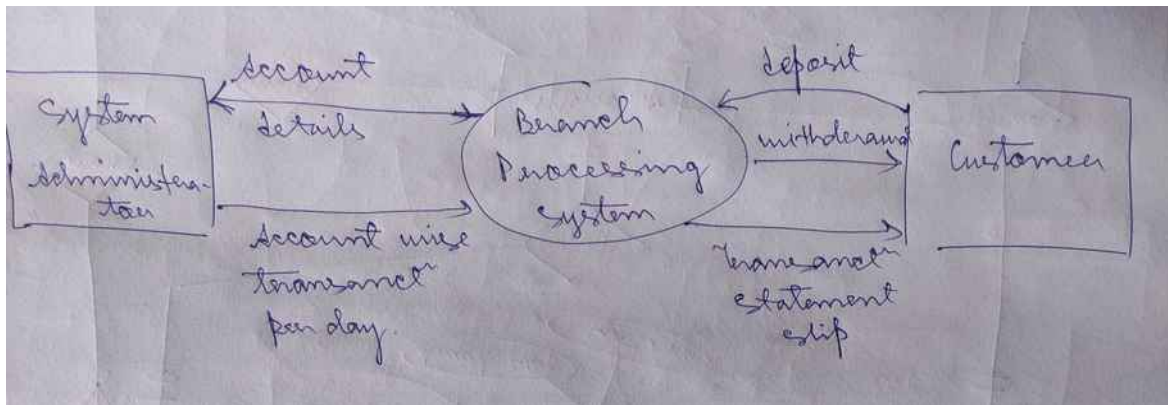 System
Administra-
tor
Account
details
Account wise
transanctⁿ
per day.
Branch
Processing
System
deposit
withdrawal
Transanctⁿ
statement
slip
Customer